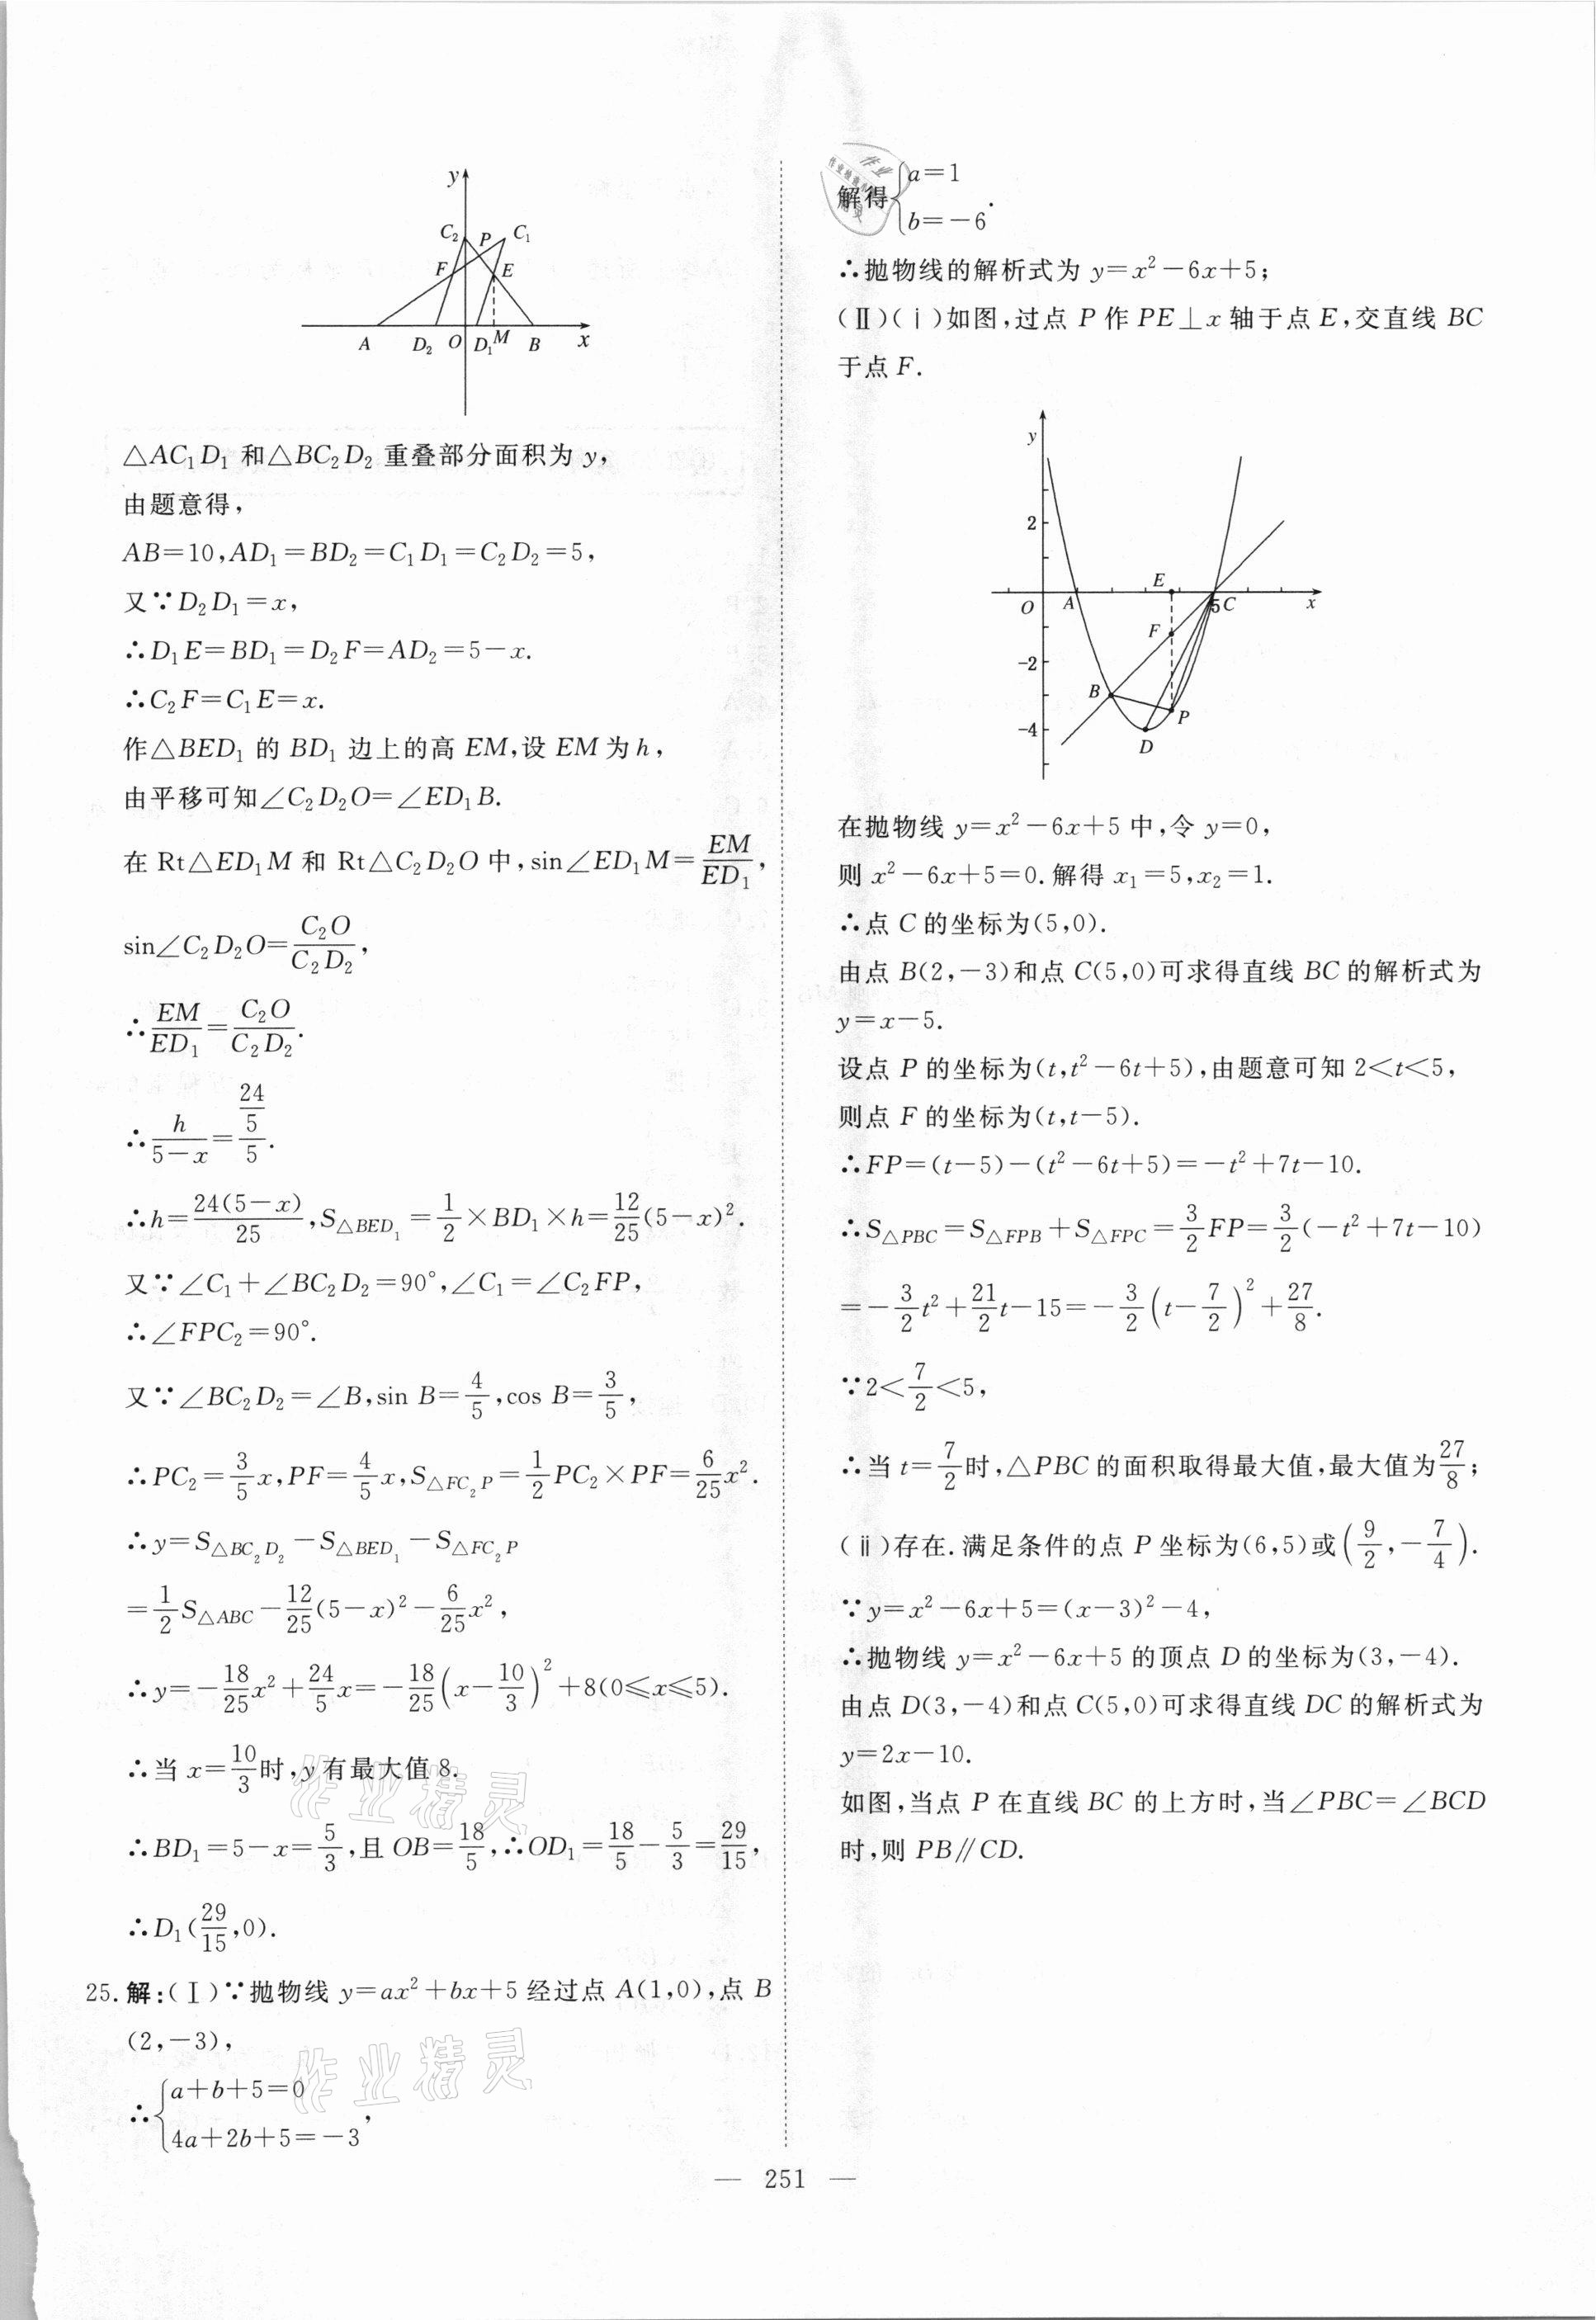 y
C₂ P C₁
F E
A D₂ O D₁ M B x
△AC₁D₁ 和△BC₂D₂ 重叠部分面积为 y,
由题意得,
AB=10,AD₁=BD₂=C₁D₁=C₂D₂=5,
又∵D₂D₁=x,
∴D₁E=BD₁=D₂F=AD₂=5-x.
∴C₂F=C₁E=x.
作△BED₁ 的 BD₁ 边上的高 EM,设 EM 为 h,
由平移可知∠C₂D₂O=∠ED₁B.
在 Rt△ED₁M 和 Rt△C₂D₂O 中,sin∠ED₁M=EM/ED₁,
sin∠C₂D₂O=C₂O/C₂D₂,
∴EM/ED₁=C₂O/C₂D₂.
∴h/(5-x)=(24/5)/5.
∴h=24(5-x)/25,S△BED₁=1/2×BD₁×h=12/25(5-x)².
又∵∠C₁+∠BC₂D₂=90°,∠C₁=∠C₂FP,
∴∠FPC₂=90°.
又∵∠BC₂D₂=∠B,sin B=4/5,cos B=3/5,
∴PC₂=3/5x,PF=4/5x,S△FC₂P=1/2PC₂×PF=6/25x².
∴y=S△BC₂D₂-S△BED₁-S△FC₂P
=1/2S△ABC-12/25(5-x)²-6/25x²,
∴y=-18/25x²+24/5x=-18/25(x-10/3)²+8(0≤x≤5).
∴当 x=10/3时,y 有最大值 8.
∴BD₁=5-x=5/3,且 OB=18/5,∴OD₁=18/5-5/3=29/15,
∴D₁(29/15,0).
25. 解:(Ⅰ)∵抛物线 y=ax²+bx+5 经过点 A(1,0),点 B
(2,-3),
∴{a+b+5=0
4a+2b+5=-3,
解得{a=1
b=-6.
∴抛物线的解析式为 y=x²-6x+5;
(Ⅱ)(ⅰ)如图,过点 P 作 PE⊥x 轴于点 E,交直线 BC
于点 F.
y
2
E
O A 5 C x
F
-2
B
P
-4
D
在抛物线 y=x²-6x+5 中,令 y=0,
则 x²-6x+5=0.解得 x₁=5,x₂=1.
∴点 C 的坐标为(5,0).
由点 B(2,-3)和点 C(5,0)可求得直线 BC 的解析式为
y=x-5.
设点 P 的坐标为(t,t²-6t+5),由题意可知 2<t<5,
则点 F 的坐标为(t,t-5).
∴FP=(t-5)-(t²-6t+5)=-t²+7t-10.
∴S△PBC=S△FPB+S△FPC=3/2FP=3/2(-t²+7t-10)
=-3/2t²+21/2t-15=-3/2(t-7/2)²+27/8.
∵2<7/2<5,
∴当 t=7/2时,△PBC 的面积取得最大值,最大值为27/8;
(ⅱ)存在.满足条件的点 P 坐标为(6,5)或(9/2,-7/4).
∵y=x²-6x+5=(x-3)²-4,
∴抛物线 y=x²-6x+5 的顶点 D 的坐标为(3,-4).
由点 D(3,-4)和点 C(5,0)可求得直线 DC 的解析式为
y=2x-10.
如图,当点 P 在直线 BC 的上方时,当∠PBC=∠BCD
时,则 PB∥CD.
作业精灵
作业精灵
— 251 —